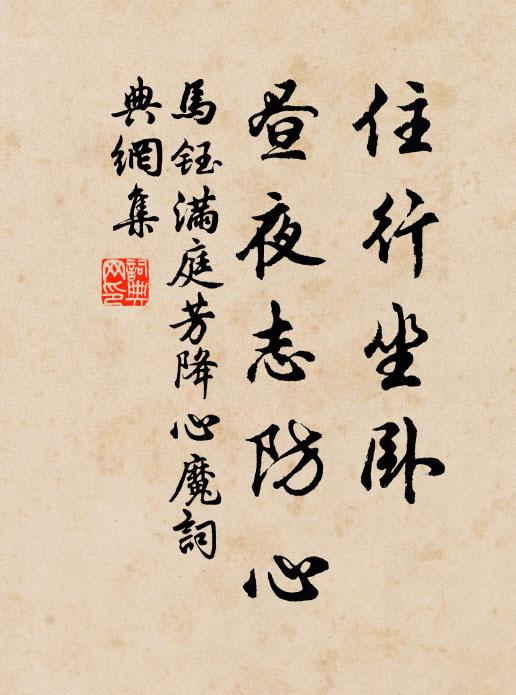 住行坐卧
昼夜志防心
馬鈺满庭芳降心魔詞
典網集
詞典网印